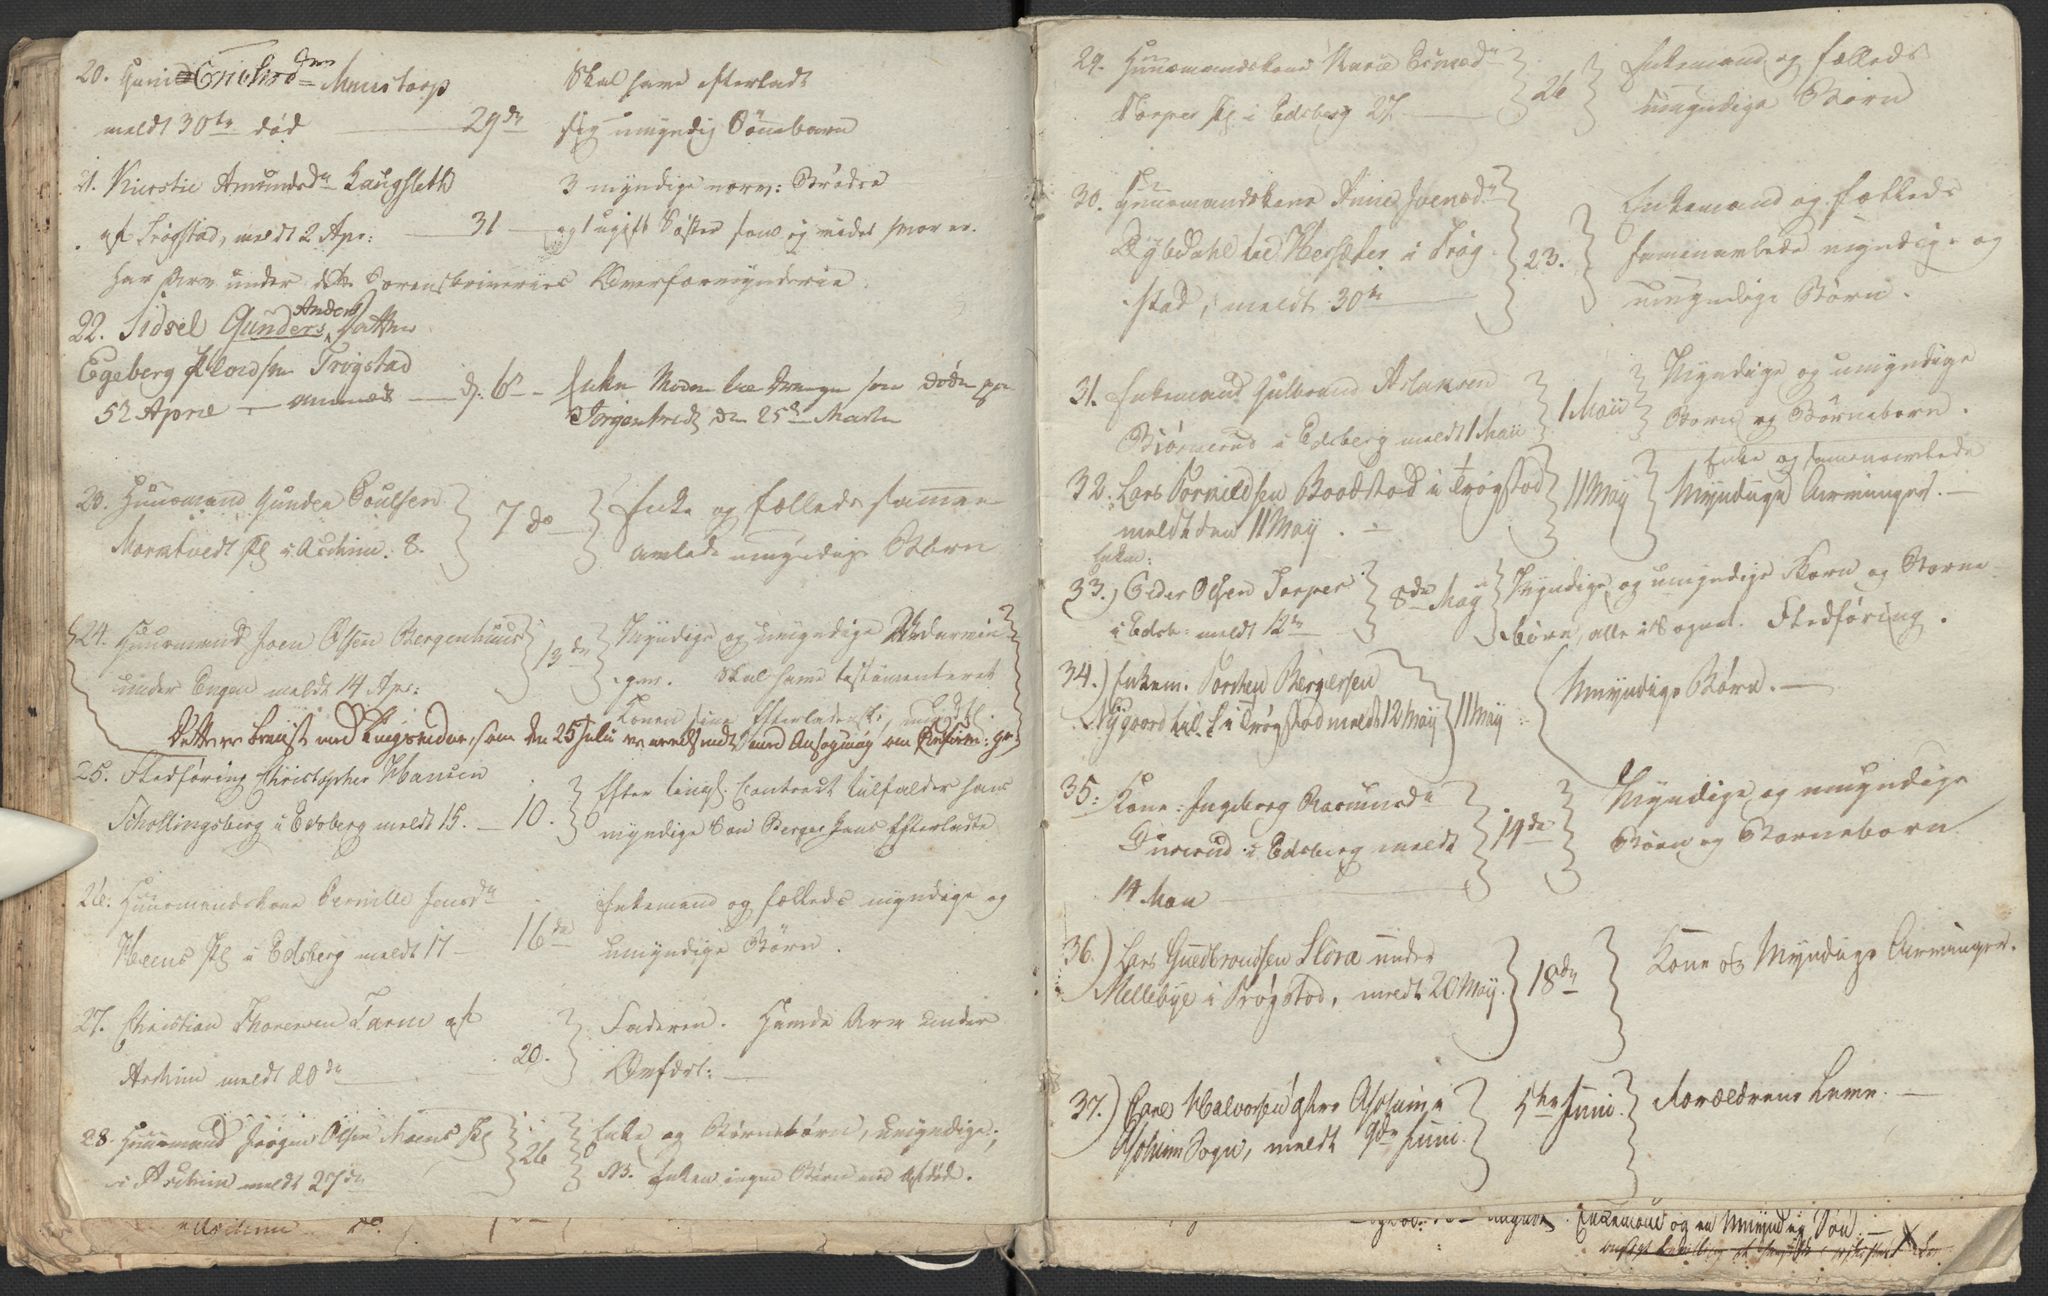 20. Erichsd
meldt 30te død — 29de
Skal have efterladt
sig umyndig Sønnebarn
21. Kirstie Amundsdr Langsleth
af Trøgstad, meldt 2 Apr: — 31 —
3 myndige Brødre
og 1 ugift Søster som ej vides hvor er.
har Arv under dette Sorenskriveries Overformynderie.
22. Sidsel Gunders Anders Datter
Egeberg Trøgstad
52 April — anmeldt — d. 6te —
Enke Moder som døde
den 25de Martii
23. Huusmand Gunder Poulsen
Momtvedt Pl i Aschim. 8.
7de —
Enke og fælleds sammen
avlede umyndige Børn
24. Huusmand Joen Olsen Bergenhuus
under Engen meldt 14 Apr:
13de
Myndige og umyndige Udarvin
ger. Skal have testamenteret
Konen sine Efterladenskr.
Dette er beviist med som den 25 Julii er med Ansøgning om Confirm:
25. Fledføring Christopher Hansen
Schollingsberg i Edsberg meldt 15. — 10.
Efter Contract tilfalder hans
myndige Søn Berger hans Efterladte
26. Huusmandskone Pernille Jensdr
Heens Pl i Edsberg meldt 17 —
16de
Enkemand og fælleds myndige og
umyndige Børn.
27. Christian Thoresen Tarm af
Aschim meldt 20de —
20.
Faderen. Havde Arv under
Ovfdrt: —
28. Huusmand Jørgen Olsen Moens Pl
i Aschim meldt 27de
26
Enke og Børnebørn, umyndige;
NB. Enken ingen Børn med Afdøde.
29. Huusmandskone Karie
Torper Pl i Edsberg 27. —
26
Enkemand og fælleds
umyndige Børn
30. Huusmandskone Anne Joensdr
Dybedahl ved Hersæter i Trøg
stad, meldt 30te —
23.
Enkemand og fælleds
sammenavlede myndige og
umyndige Børn.
31. Enkemand Gulbrand Aslaksen
Biørnerud i Edsberg meldt 1 Maii
1 Maii
Myndige og umyndige
Børn og Børnebørn.
32. Lars Torkildsen Boodstad i Trøgstad
meldt den 11 May. —
11 May
Enke og sammenavlede
Myndige Arvinger. —
Enkem:
33.) Peder Olsen Torper
i Edsb: meldt 12te
8de May
Myndige og umyndige Børn og Børne
børn, alle i Sognet. Fledføring.
34.) Enkem. Torsten Bergersen
Nygaard i Trøgstad meldt 12 May
11 May
Umyndige Børn. —
35: Kone: Ingeborg Rasmusdr
i Edsberg meldt
14 Maii —
14de
Myndige og umyndige
Børn og Børnebørn
36.) Lars Gudbrandsen Slora under
Mellebye i Trøgstad, meldt 20 May.
18de
Kone og Myndige Arvinger.
37.) Carl Halvorsen Østre Askim i
Askim Sogn, meldt 9de Juni.
5te Juni.
Forældrene Leve. —
August. Enkemand og en Umyndig Søn. —